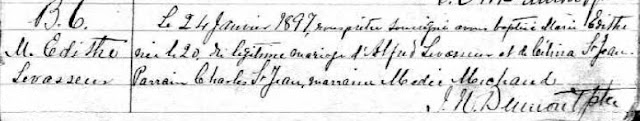 B. C.
M. Edithe
Levasseur
Le 24 Janvier 1897, nous prêtre soussigné avons baptisé Marie Edithe
née le 20, du légitime mariage d'Alfred Levasseur et de Celina St Jean
Parrain Charles St Jean, marraine Médée Michaud.
J. N. Dumont Ptre